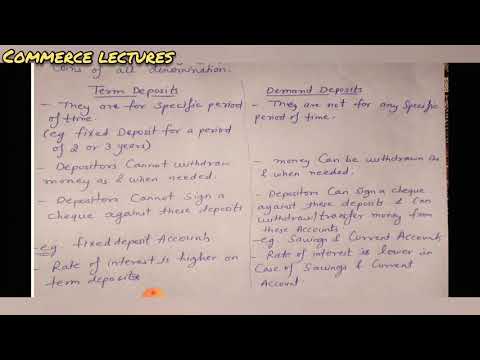 Commerce lectures
Coins of all denomination.
Term Deposits
- They are for specific period
of time.
(eg fixed Deposit for a period
of 2 or 3 years)
- Depositors Cannot withdraw
money as & when needed.
- Depositors Cannot Sign a
cheque against these deposits
- eg fixed deposit Accounts
- Rate of interest is higher on
term deposits
Demand Deposits
- They are not for any specific
period of time.
- money Can be withdrawn as
& when needed.
- Depositors Can Sign a cheque
against these deposits & Can
withdraw/transfer money from
these Accounts
- eg. Savings & Current Accounts
- Rate of interest is lower in
Case of Savings & Current
Account